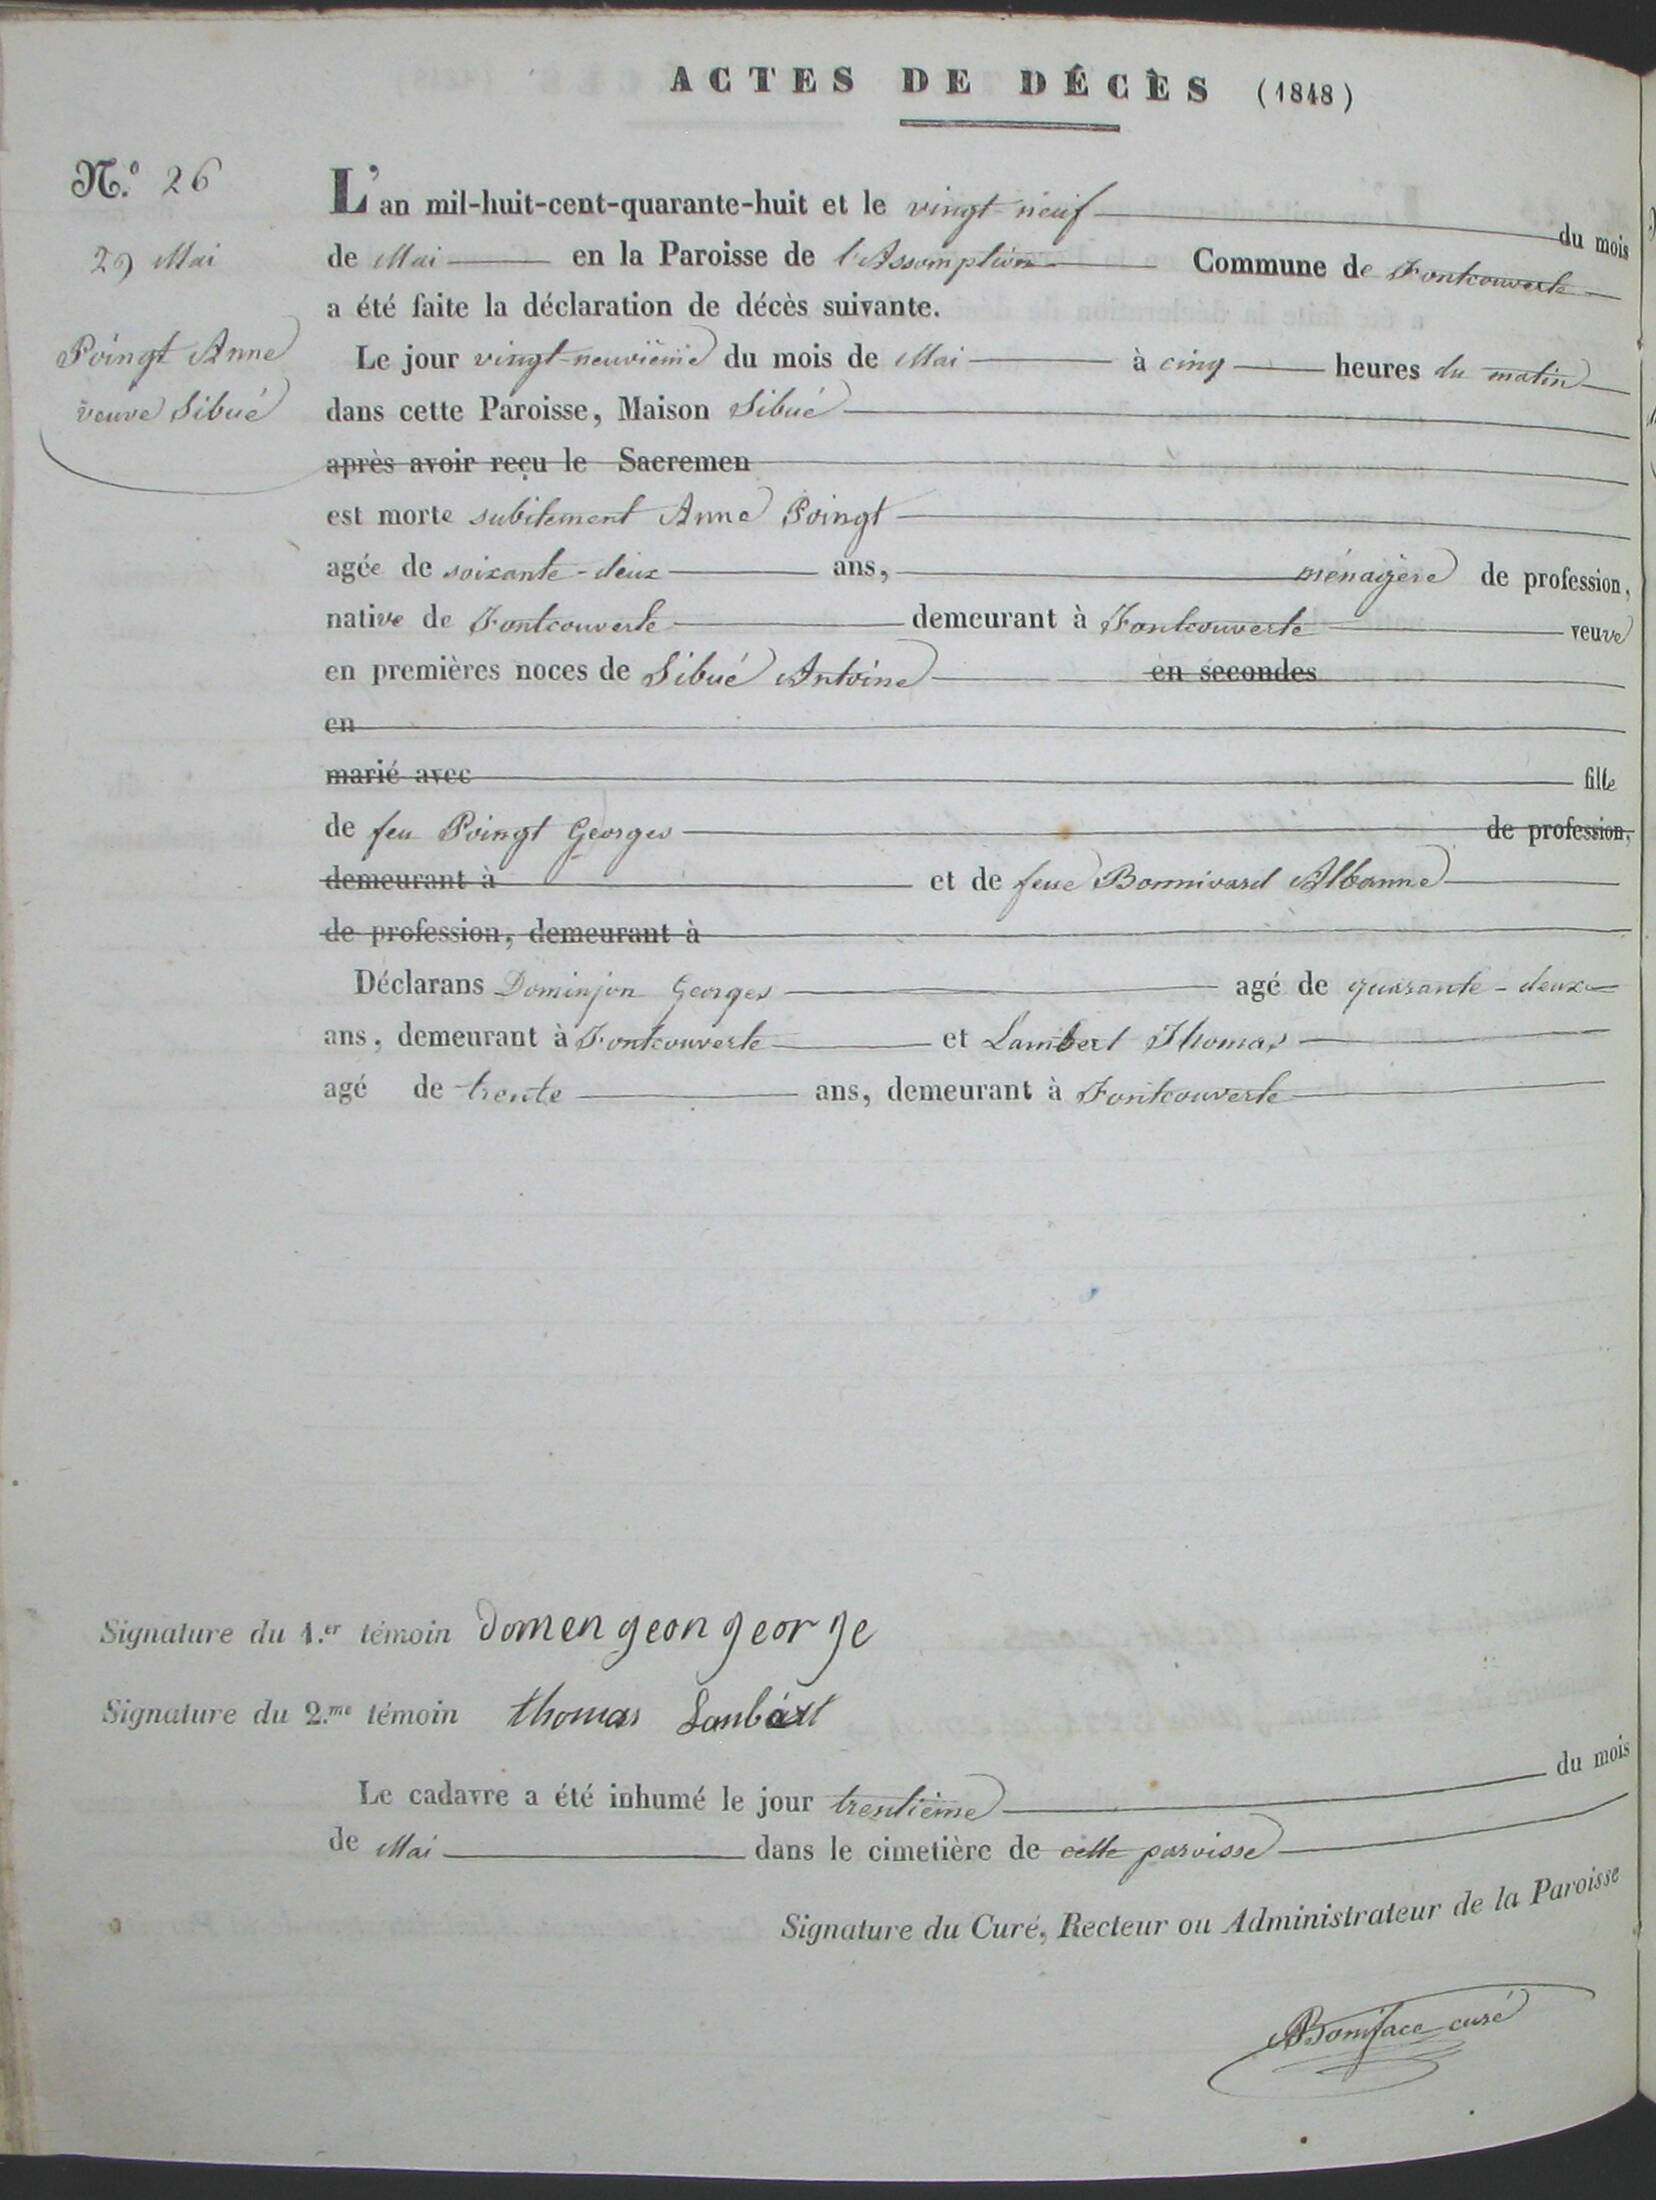 ACTES DE DÉCÈS (1848)
N.º 26
29 Mai
Poingt Anne
veuve Sibué
L'an mil-huit-cent-quarante-huit et le vingt-neuf du mois
de Mai en la Paroisse de l'Assomption Commune de Fontcouverte
a été faite la déclaration de décès suivante.
Le jour vingt-neuvième du mois de Mai à cinq heures du matin
dans cette Paroisse, Maison Sibué
après avoir reçu le Sacremen
est morte subitement Anne Poingt
agée de soixante-deux ans, ménagère de profession,
native de Fontcouverte demeurant à Fontcouverte veuve
en premières noces de Sibué Antoine en secondes
en
marié avec fille
de feu Poingt Georges de profession,
demeurant à et de feue Bonnivard Albanne
de profession, demeurant à
Déclarans Dominjon Georges agé de quarante-deux
ans, demeurant à Fontcouverte et Lambert Thomas
agé de trente ans, demeurant à Fontcouverte
Signature du 1.er témoin domengeon george
Signature du 2.me témoin thomas Lanbert
Le cadavre a été inhumé le jour trentième du mois
de Mai dans le cimetière de cette paroisse
Signature du Curé, Recteur ou Administrateur de la Paroisse
Boniface curé